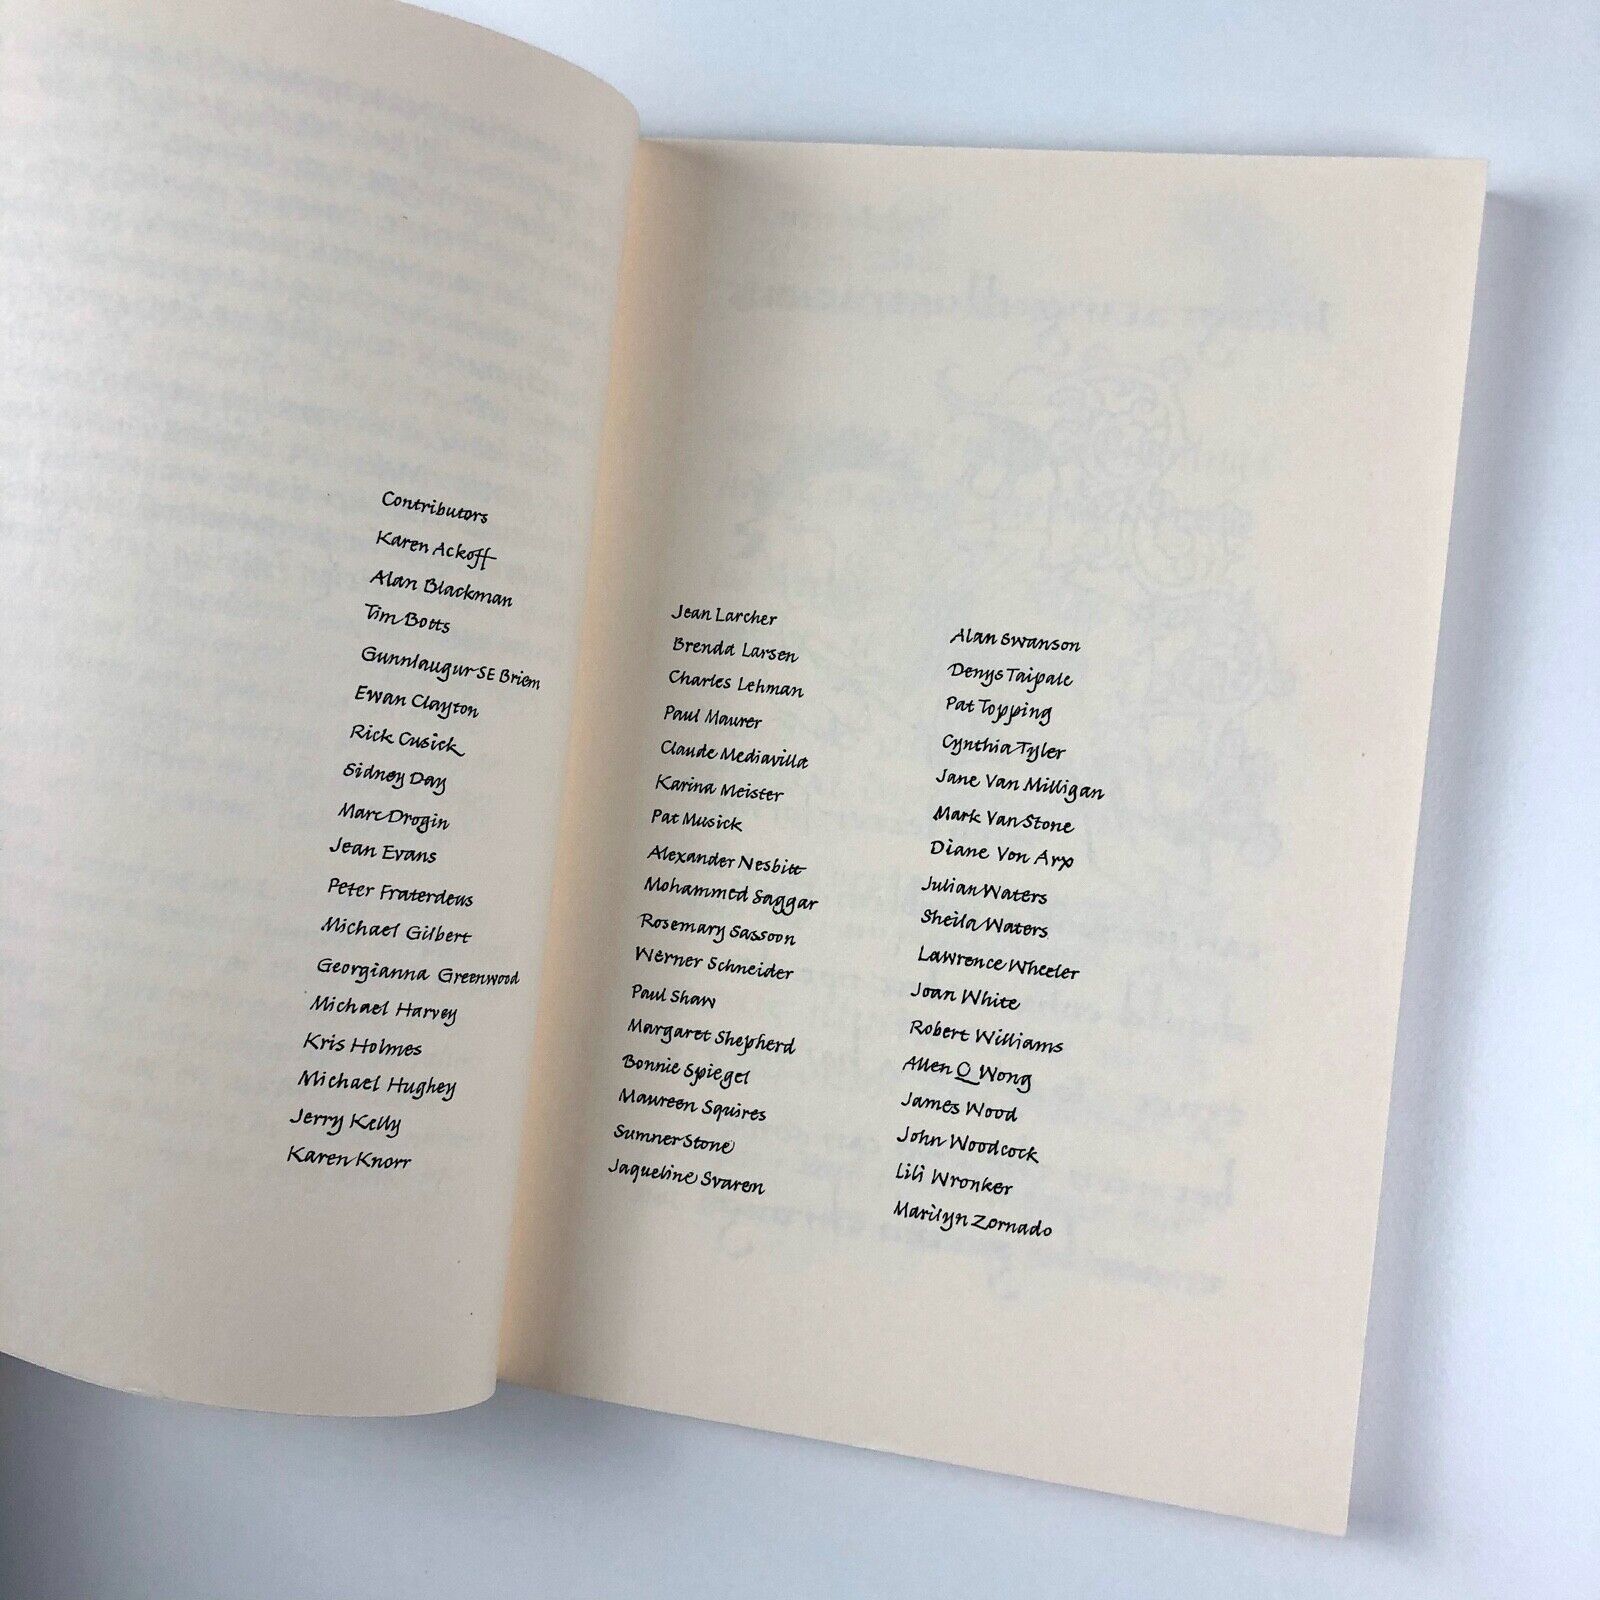 Contributors
Karen Ackoff
Alan Blackman
Tim Botts
Gunnlaugur SE Briem
Ewan Clayton
Rick Cusick
Sidney Day
Marc Drogin
Jean Evans
Peter Fraterdeus
Michael Gilbert
Georgianna Greenwood
Michael Harvey
Kris Holmes
Michael Hughey
Jerry Kelly
Karen Knorr
Jean Larcher
Brenda Larsen
Charles Lehman
Paul Maurer
Claude Mediavilla
Karina Meister
Pat Musick
Alexander Nesbitt
Mohammed Saggar
Rosemary Sassoon
Werner Schneider
Paul Shaw
Margaret Shepherd
Bonnie Spiegel
Maureen Squires
Sumner Stone
Jaqueline Svaren
Alan Swanson
Denys Taipale
Pat Topping
Cynthia Tyler
Jane Van Milligan
Mark Van Stone
Diane Von Arx
Julian Waters
Sheila Waters
Lawrence Wheeler
Joan White
Robert Williams
Allen Q Wong
James Wood
John Woodcock
Lili Wronker
Marilyn Zornado